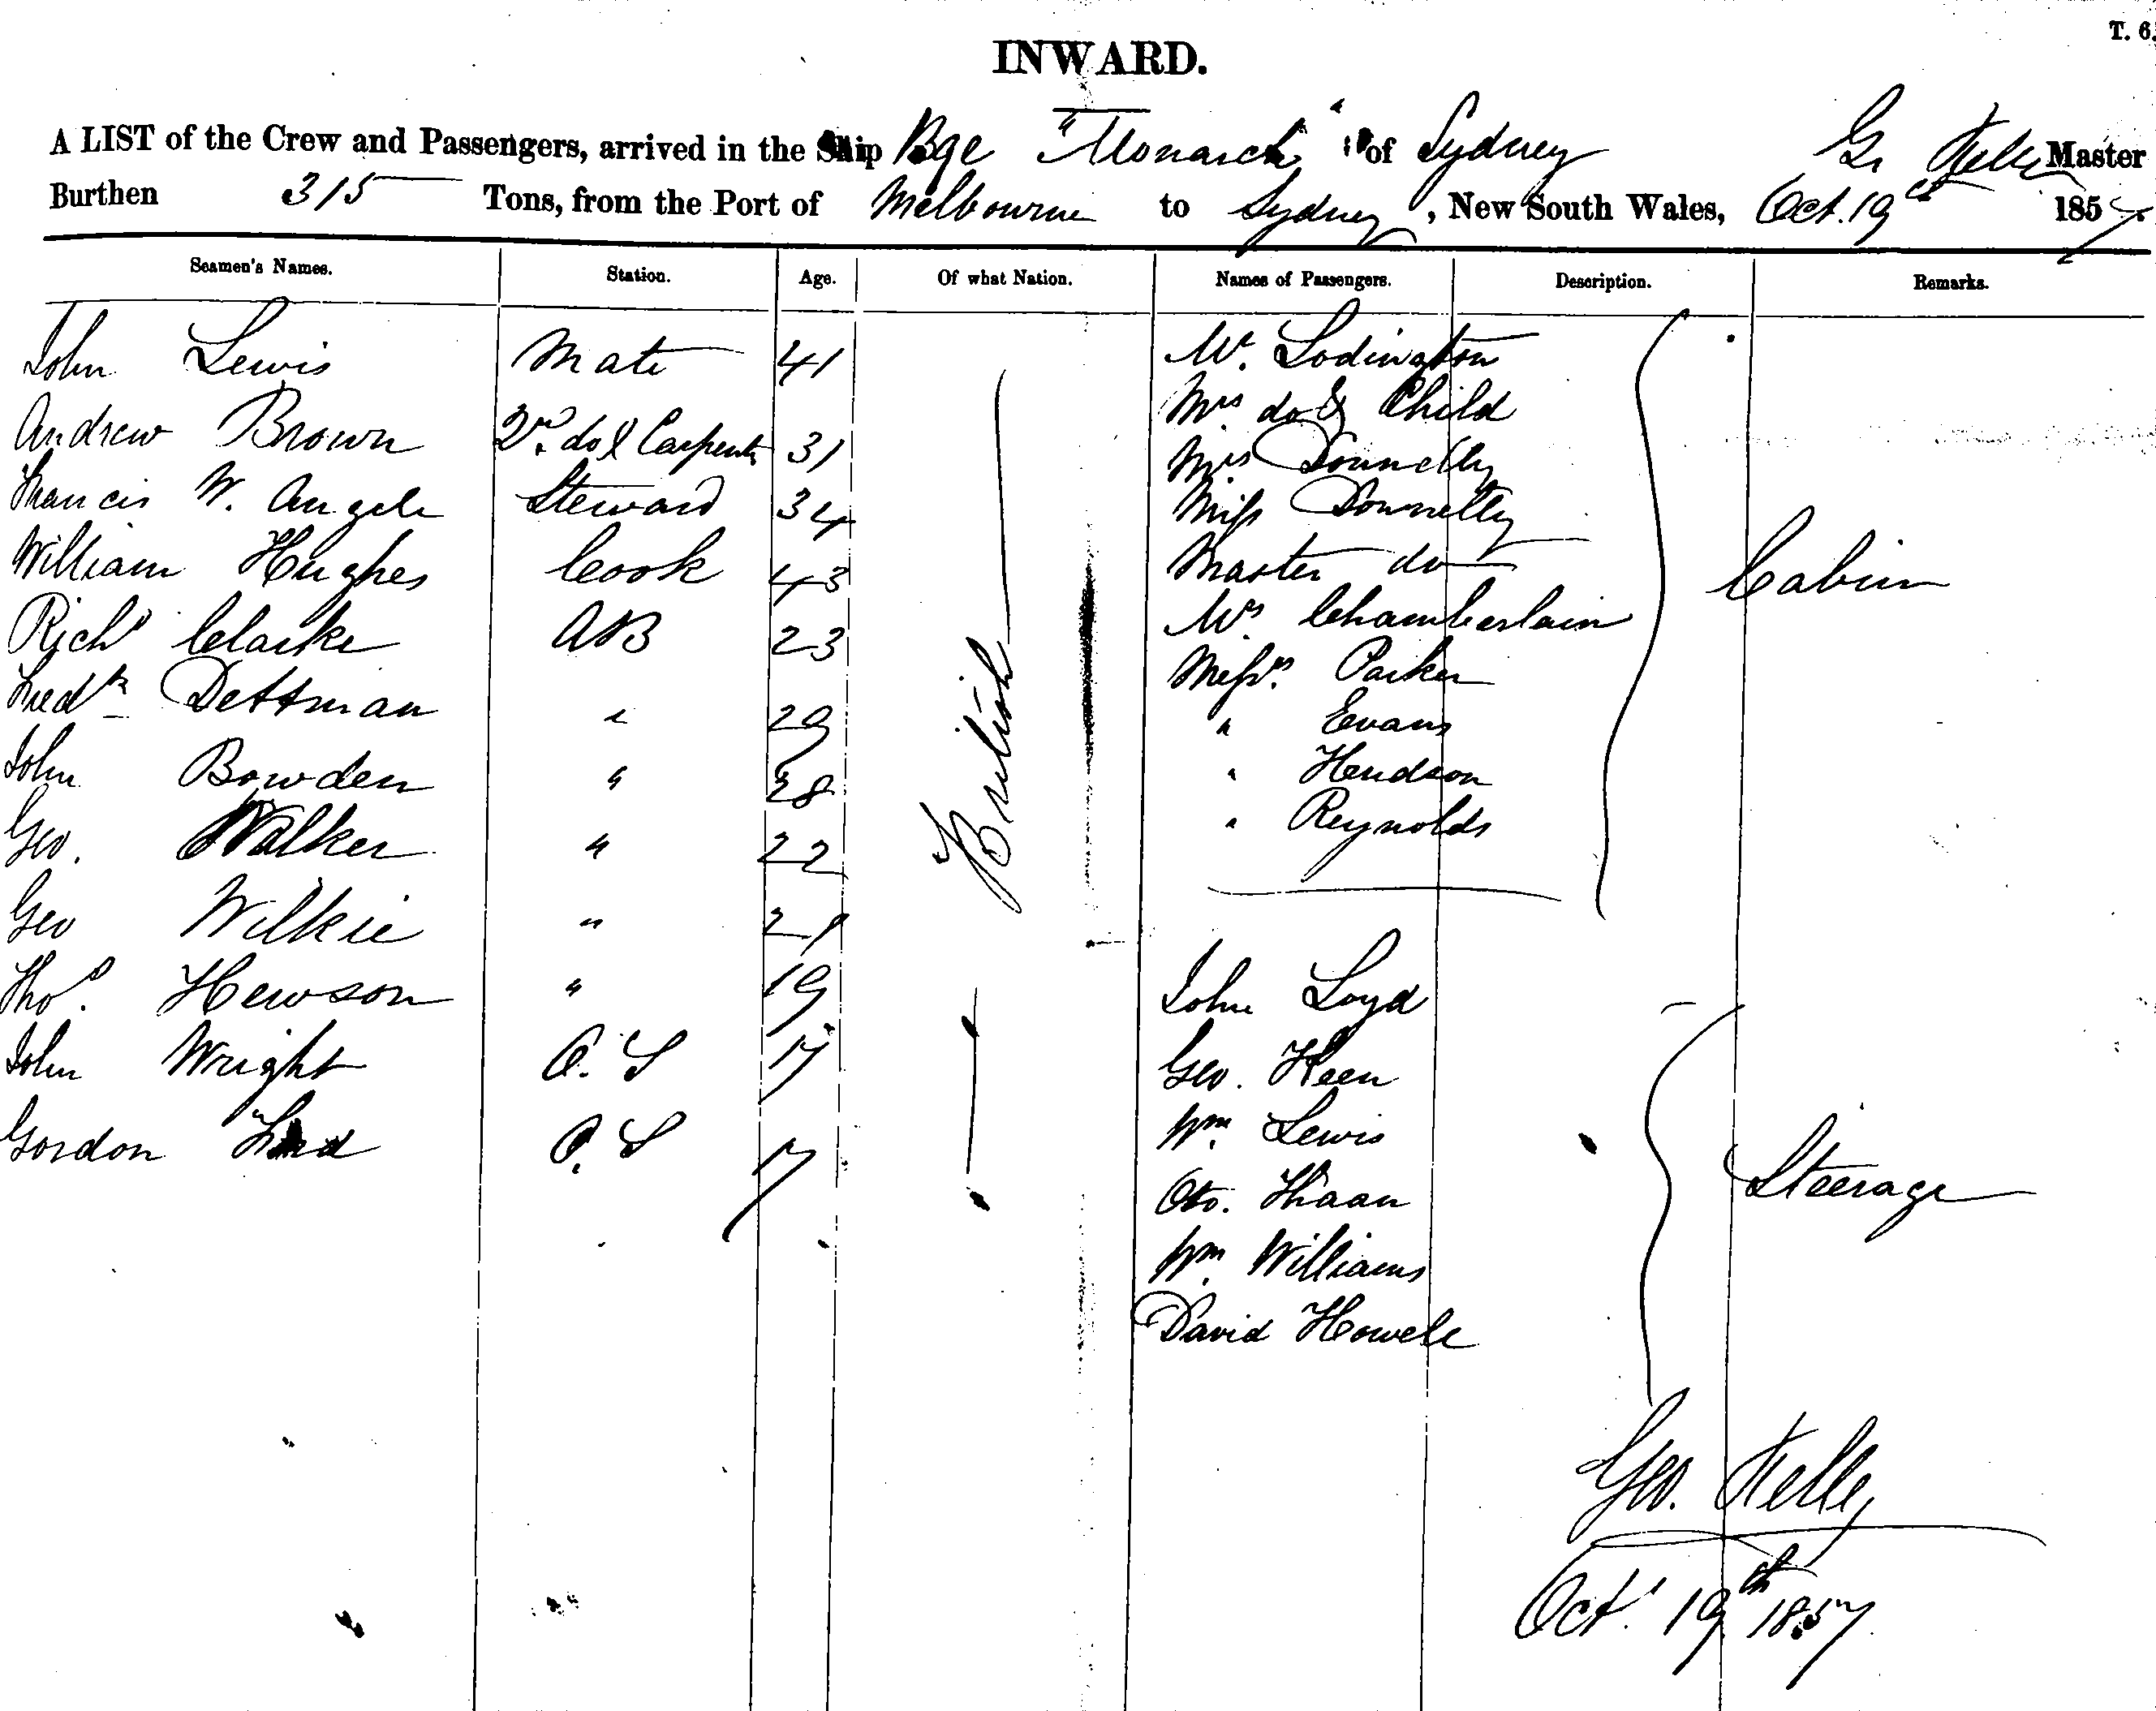 T. 6.
INWARD.
A LIST of the Crew and Passengers, arrived in the Ship Bqe "Monarch" of Sydney G. Kelly Master
Burthen 315 Tons, from the Port of Melbourne to Sydney, New South Wales, Oct. 19th 1857.
Seamen's Names. Station. Age. Of what Nation. Names of Passengers. Description. Remarks.
John Lewis Mate 41
Andrew Brown 2nd. do & Carpentr 31
Francis W. Angele Steward 34
William Hughes Cook 43
Richd Clarke AB 23
Fredk Dettman " 29
John Bowden " 28
Geo. Walker " 22
Geo Wilkie " 21
Thos. Hewson " 19
John Wright O. S 17
Gordon O. S 17
British
Mr. Lodington
Mrs do & Child
Mrs Donnelly
Miss Donnelly
Master do
Mrs. Chamberlain
Messrs. Parker
" Evans
" Hendson
" Reynolds
Cabin
John Loyd
Geo. Keen
Wm. Lewis
Oto. Haan
Wm. Williams
David Howele
Steerage
Geo. Kelly
Oct. 19th 1857.